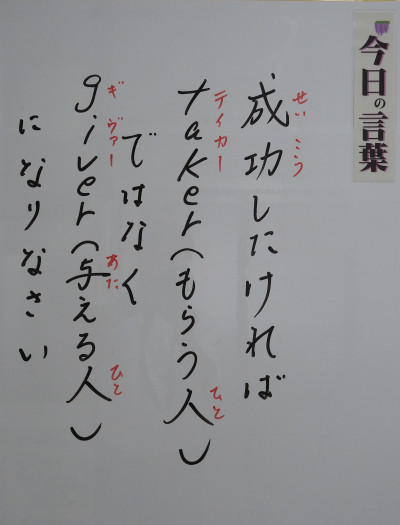 今日の言葉
せいこう
成功したければ
テイカー
taker(もらう人)
ひと
ではなく
ギヴァー
giver(与える人)
あた
ひと
になりなさい